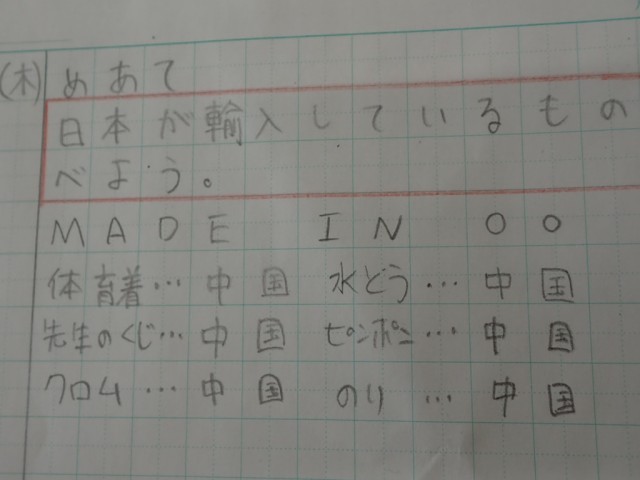 (木) めあて
日本が輸入しているもの
べよう。
MADE IN ○○
体育着…中国 水とう…中国
先生のくじ…中国 ピンポン…中国
クロム…中国 のり…中国